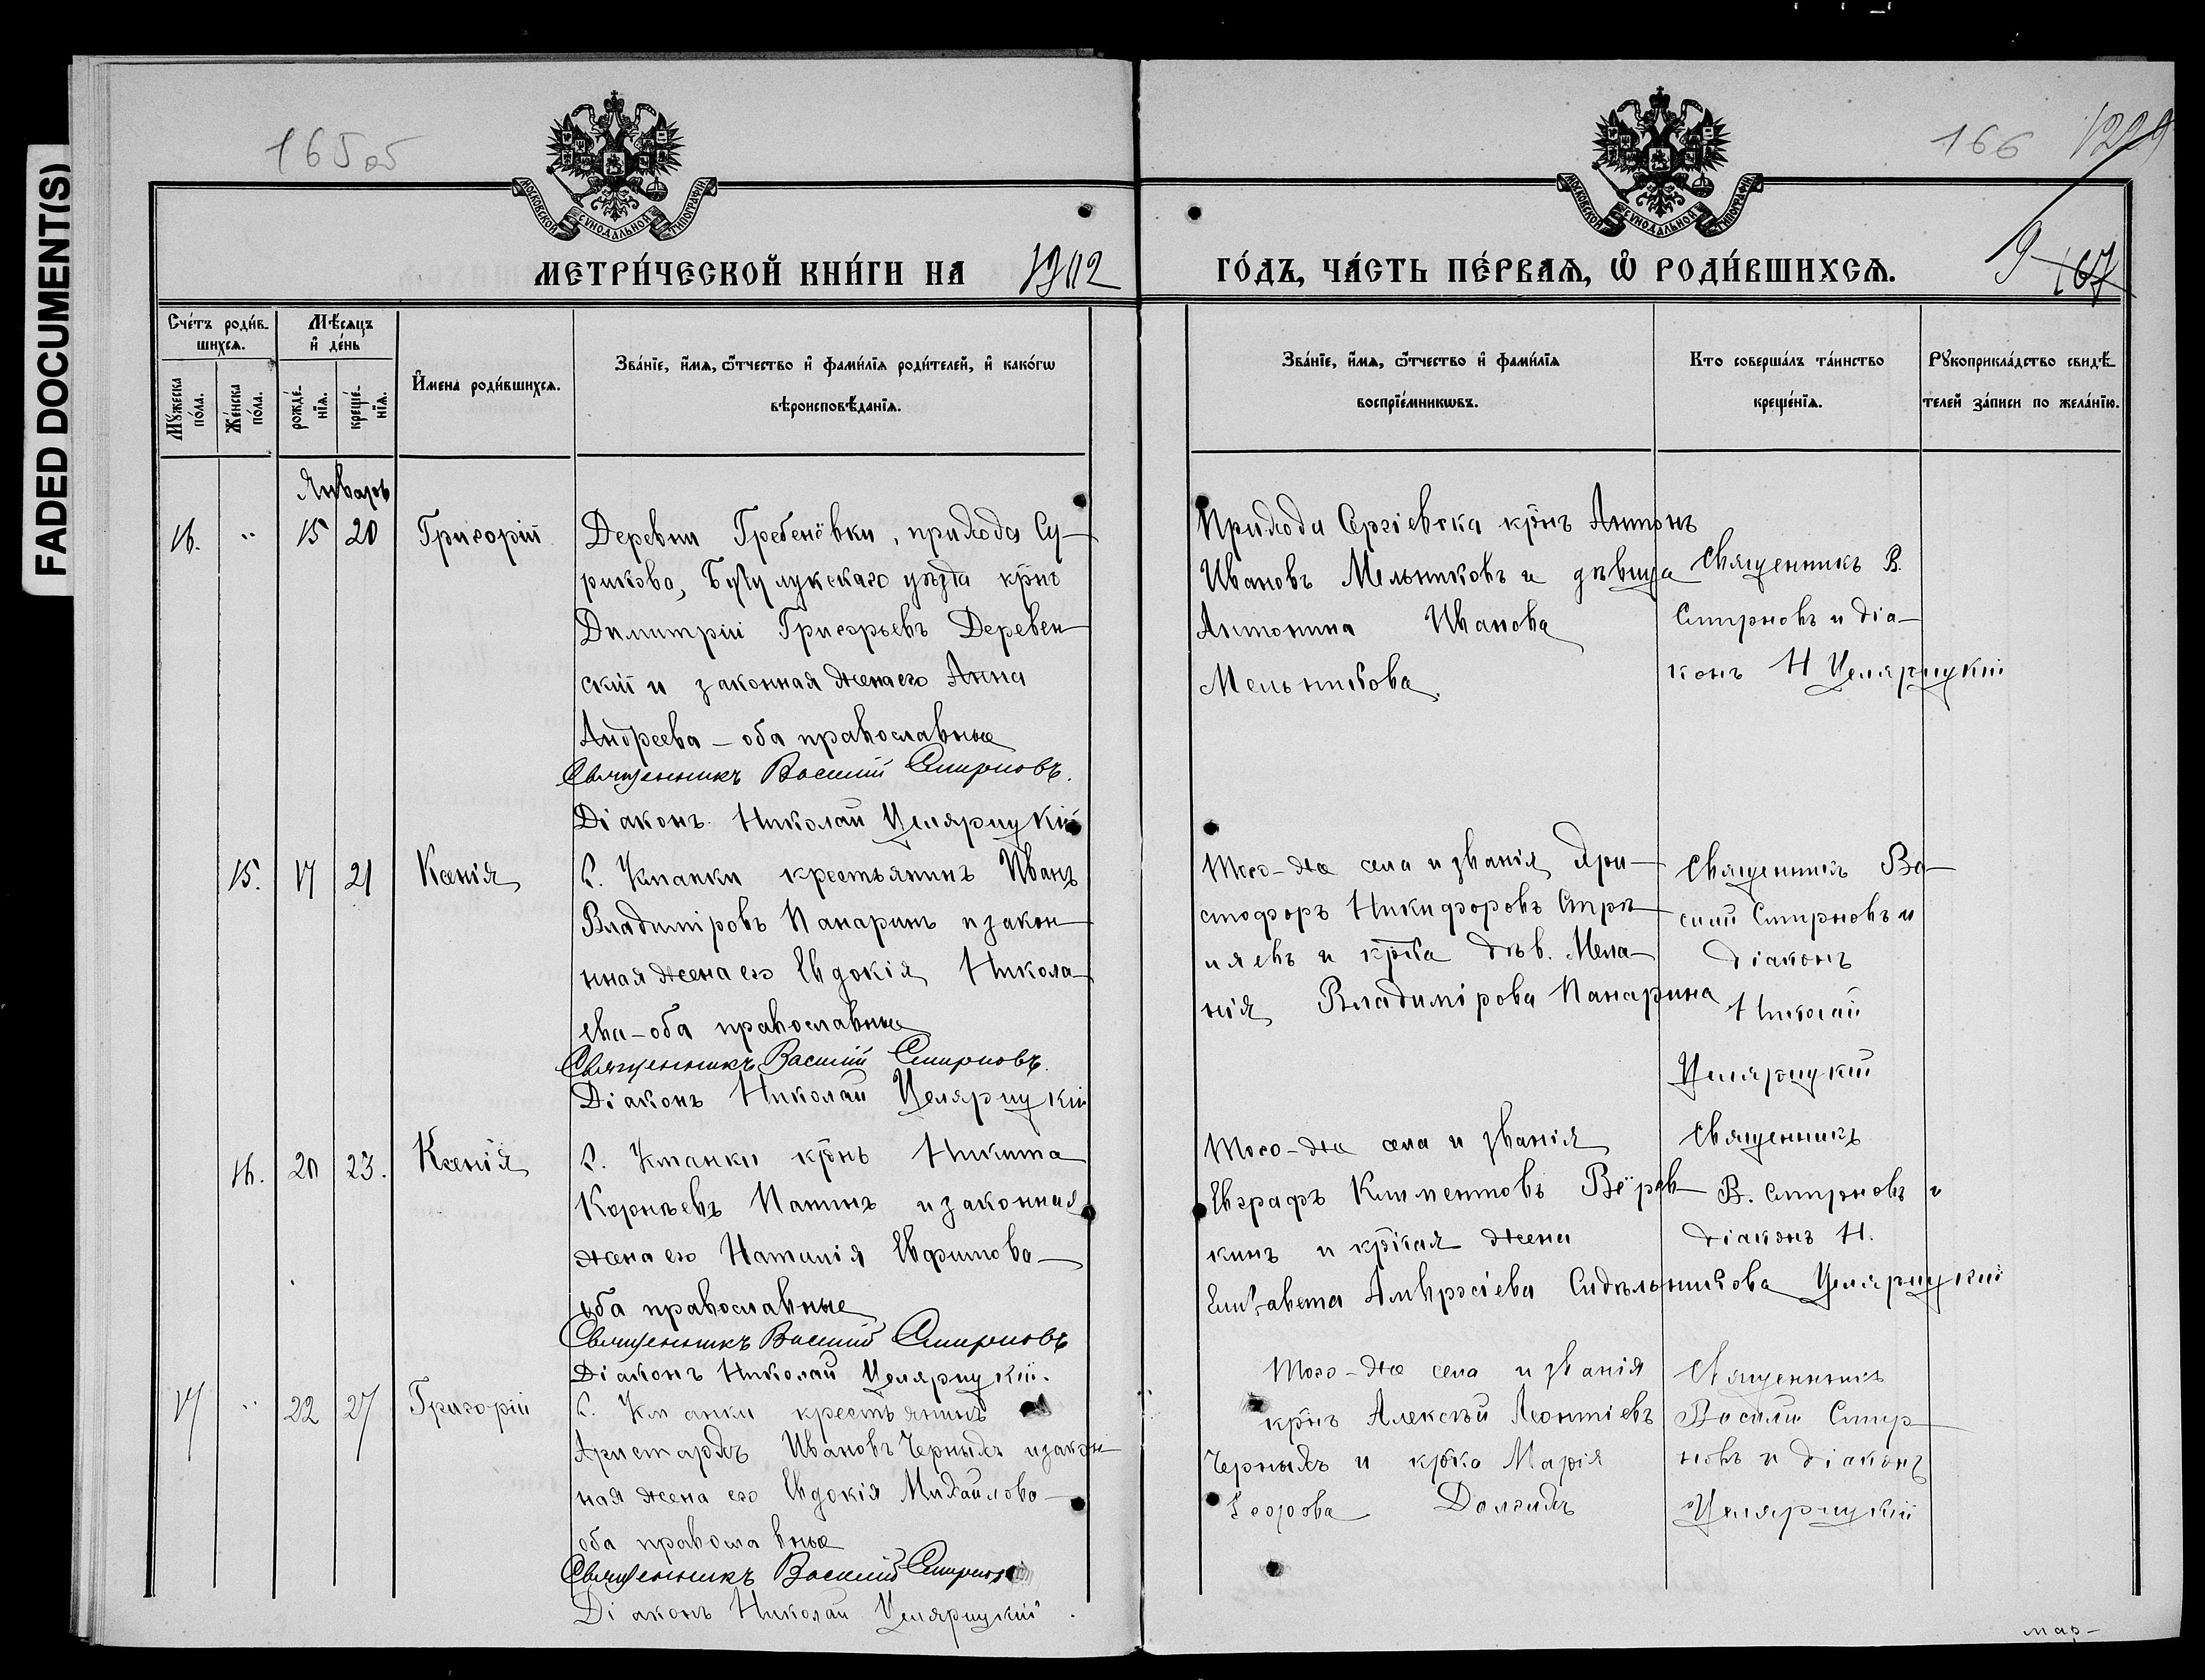 FADED DOCUMENT(S)
165об
166 1229
МОСКОВСКОЙ СѴНОДАЛЬНОЙ ТИПОГРАФІИ.
МОСКОВСКОЙ СѴНОДАЛЬНОЙ ТИПОГРАФІИ.
МЕТРИ́ЧЕСКОЙ КНИ́ГИ НА 1912
ГО́ДЪ, ЧА́СТЬ ПЕ́РВАѦ, Ѡ҆ РОДИ́ВШИХСѦ.
9 167
Сче́тъ роди́в-
шихсѧ.
Мѣ́сѧцъ
и҆ де́нь
Мꙋ́жеска по́ла.
Же́нска по́ла.
рожде́-нїѧ.
креще́-нїѧ.
И҆мена роди́вшихсѧ.
Зва́нїе, и҆́мѧ, ѻ҆́тчество и҆ фами́лїѧ роди́телей, и҆ како́гѡ
вѣроисповѣ́данїѧ.
Зва́нїе, и҆́мѧ, ѻ҆́тчество и҆ фами́лїѧ
воспрїе́мникѡвъ.
Кто соверша́лъ та́инство
креще́нїѧ.
Рꙋкоприкла́дство свидѣ́-
телей за́писи по жела́нїю.
Январь
16. " 15 20 Григорій
Деревни Гребенёвки, прихода Су-
рикова, Бугулукскаго уѣзда крнъ
Димитрій Григорьевъ Деревен-
скій и законная жена его Анна
Андреева - оба православные
Священникъ Василій Смирновъ.
Діаконъ Николай Целярицкій
Прихода Сергіевска крнъ Антонъ
Ивановъ Мельниковъ и дѣвица
Антонина Иванова
Мельникова
Священникъ В.
Смирновъ и діа-
конъ Н Целярицкій
15. 17 21 Ксенія
С. Кманки крестьянинъ Иванъ
Владиміровъ Панаринъ и закон-
нная жена его Евдокія Никола-
ева - оба православные
Священникъ Василій Смирновъ.
Діаконъ Николай Целярицкій
Того-же села и званія Хри-
стофоръ Никифоровъ Стрѣ-
ляевъ и крка дѣв. Мела-
нія Владимірова Панарина
Священникъ Ва-
силій Смирновъ и
діаконъ
Николай
Целярицкій
16. 20 23. Ксенія
С. Кманки крнъ Никита
Корнѣевъ Панинъ и законная
жена его Наталія Евфимова -
оба православные
Священникъ Василій Смирновъ
Діаконъ Николай Целярицкій.
Того-же села и званія
Евграфъ Климентовъ Вёрев-
кинъ и кркая жена
Елизавета Амвросіева Сидѣльникова
Священникъ
В. Смирновъ и
діаконъ Н.
Целярицкій
17 " 22 27 Григорій
С. Кманки крестьянинъ
Аристархъ Ивановъ Черныхъ и закон
ная жена его Евдокія Михайлова -
оба православные
Священникъ Василій Смирновъ
Діаконъ Николай Целярицкій.
Того-же села и званія
крнъ Алексѣй Леонтіевъ
Черныхъ и крка Марія
Егорова Долгихъ
Священникъ
Василій Смир-
новъ и діаконъ
Целярицкій
мар-